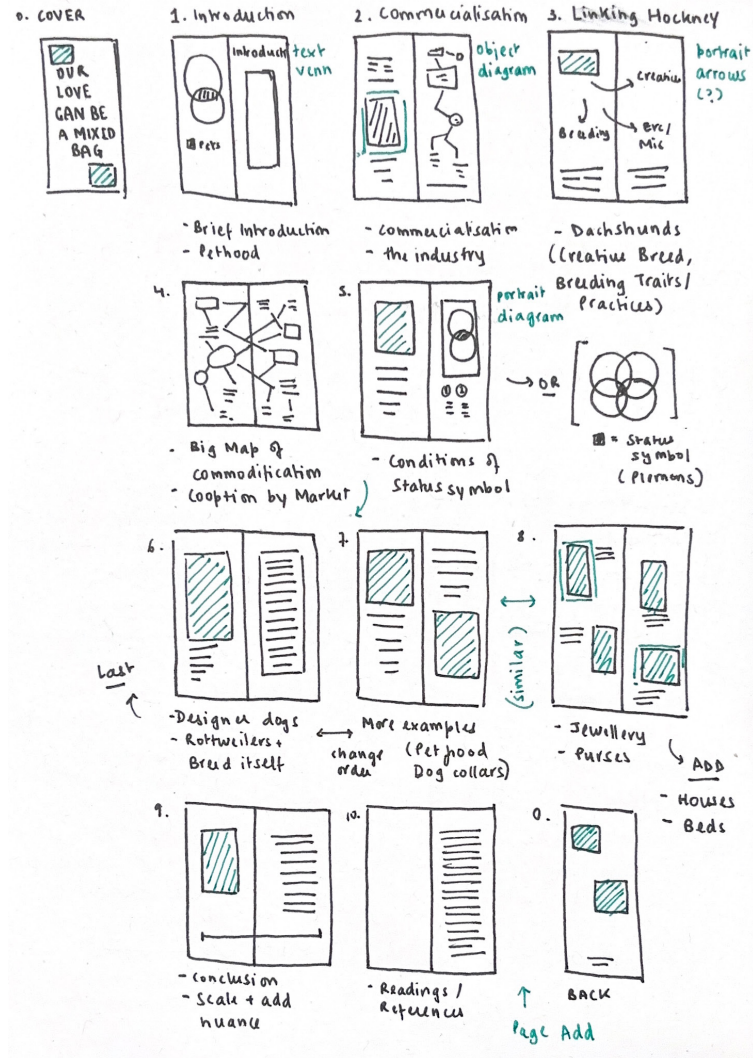 0. COVER
OUR
LOVE
CAN BE
A MIXED
BAG
1. Introduction
Introducti
Pets
text
venn
- Brief Introduction
- Pethood
2. Commercialisation
object
diagram
- Commercialisation
- the industry
3. Linking Hockney
Creative
Breeding
portrait
arrows
(?)
- Dachshunds
(Creative Breed,
Breeding Traits/
Practices)
4.
- Big Map of
commodification
- Cooption by Market
5.
portrait
diagram
- Conditions of
Status symbol
OR
= Status
symbol
6.
Last
- Designer dogs
- Rottweilers +
Breed itself
change
order
7.
More examples
(Pet food
Dog collars)
(similar)
8.
- Jewellery
- Purses
ADD
- Houses
- Beds
9.
- Conclusion
- Scale + add
nuance
10.
- Readings/
References
Page Add
0.
BACK